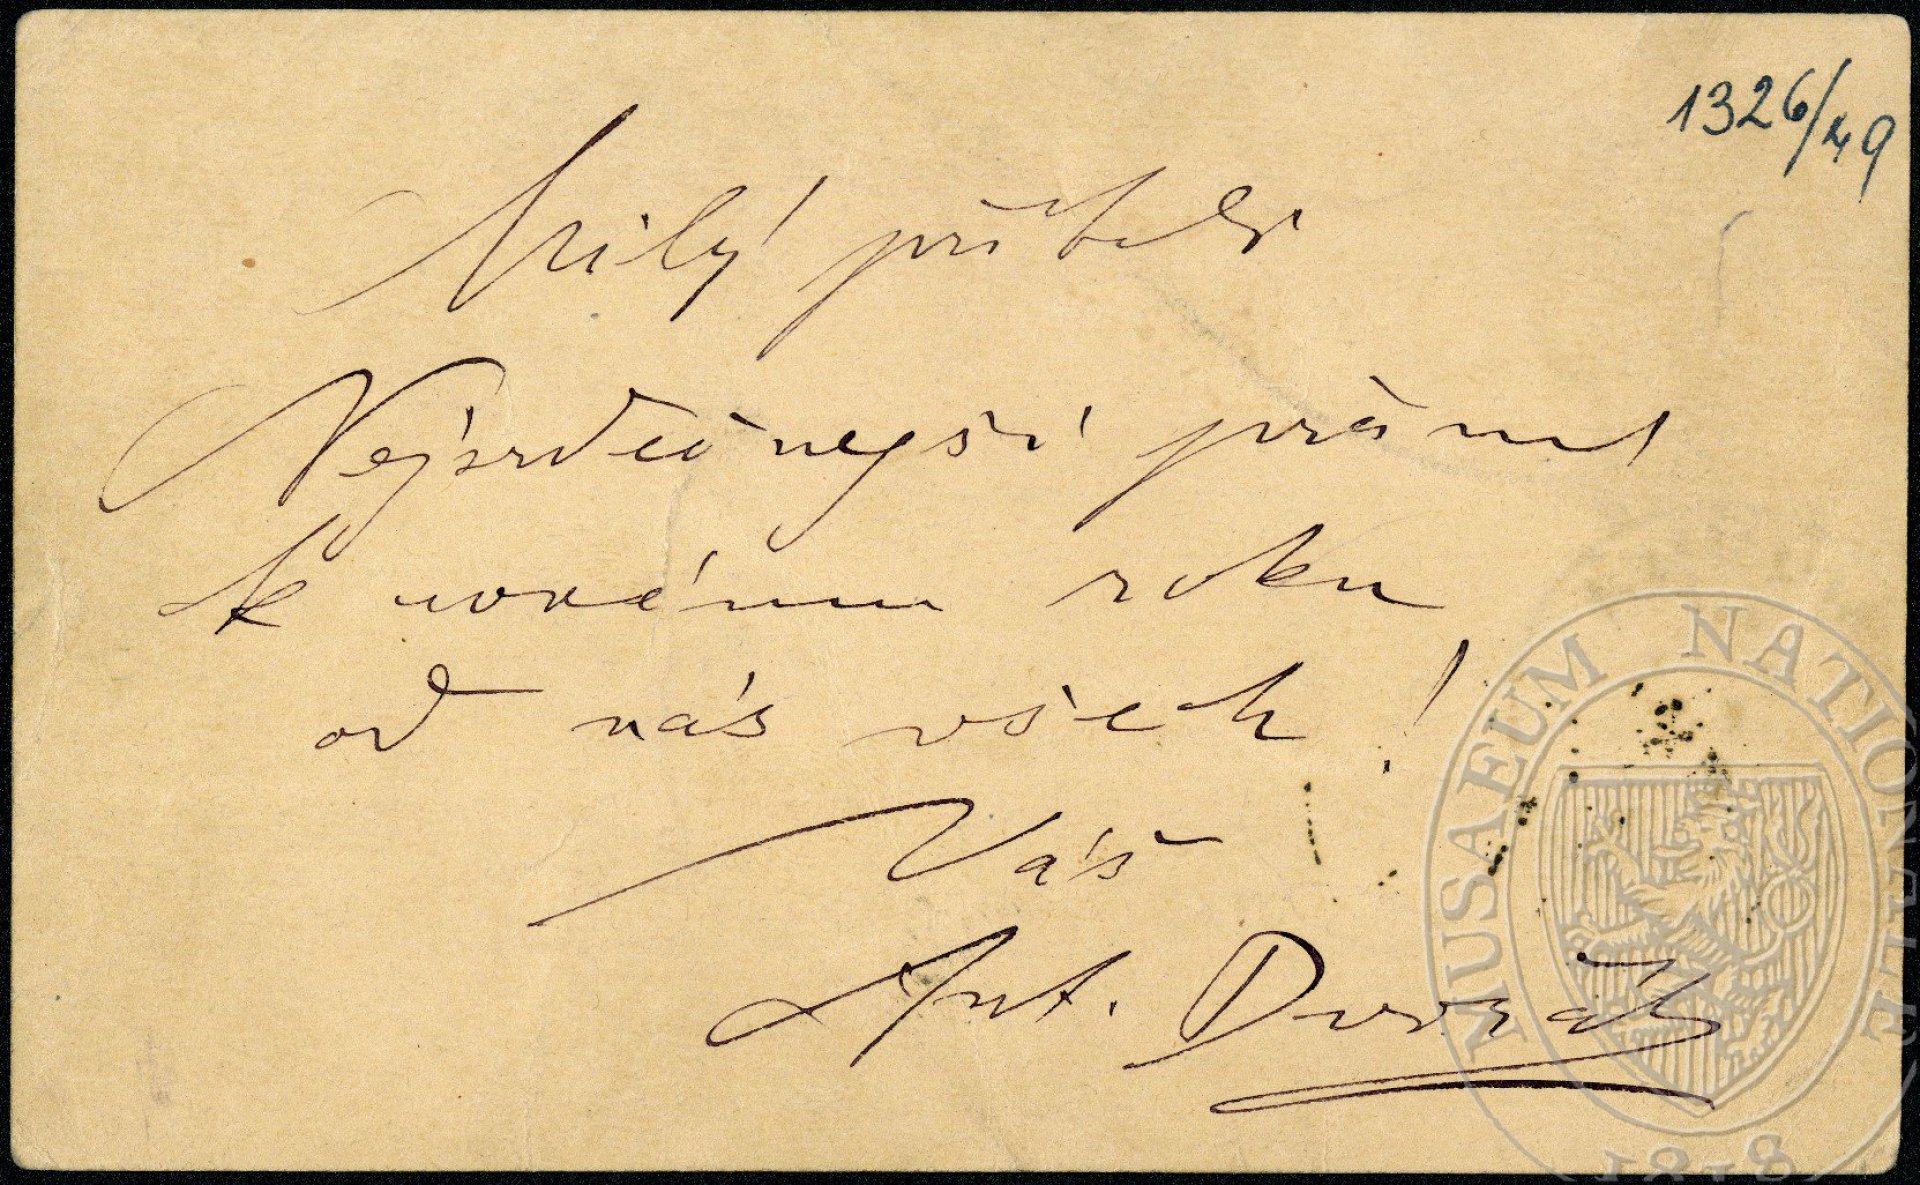 1326/49
Milý příteli
Nejsrdečnejší přání
k novému roku
od nás všech!
Váš
Ant. Dvořák
MUSAEUM NATIONALE
1818